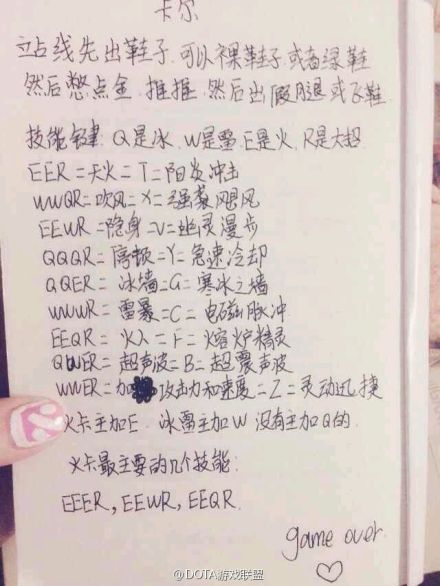 卡尔
站线先出鞋子.可以裸鞋子或者绿鞋
然后憋点金.推推.然后出假腿或飞鞋
技能按键.Q是冰.W是雷.E是火.R是大招
EER=天火=T=阳炎冲击
WWQR=吹风=X=强袭飓风
EEWR=隐身=V=幽灵漫步
QQQR=停顿=Y=急速冷却
QQER=冰墙=G=寒冰之墙
WWWR=雷暴=C=电磁脉冲
EEQR=火人=F=熔炉精灵
QWER=超声波=B=超震声波
WWER=加攻击力和速度=Z=灵动迅捷
火卡主加E.冰雷主加W 没有主加Q的.
火卡最主要的几个技能:
EEER,EEWR,EEQR.
game over.
@DOTA游戏联盟